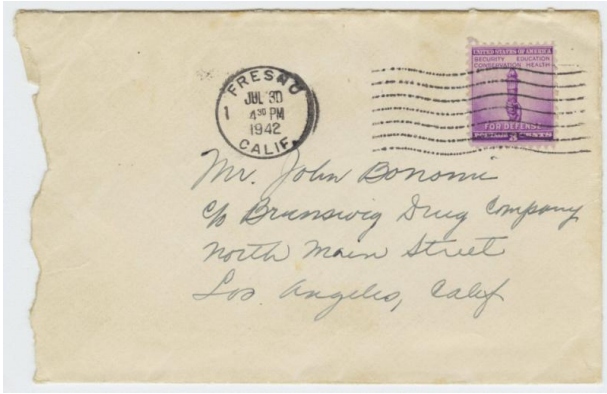 FRESNO
JUL 30
4 30 PM
1942
CALIF.
1
UNITED STATES OF AMERICA
SECURITY EDUCATION
CONSERVATION HEALTH
FOR DEFENSE
3 CENTS
Mr. John Bonomi
c/o Brunswig Drug Company
North Main Street
Los Angeles, Calif